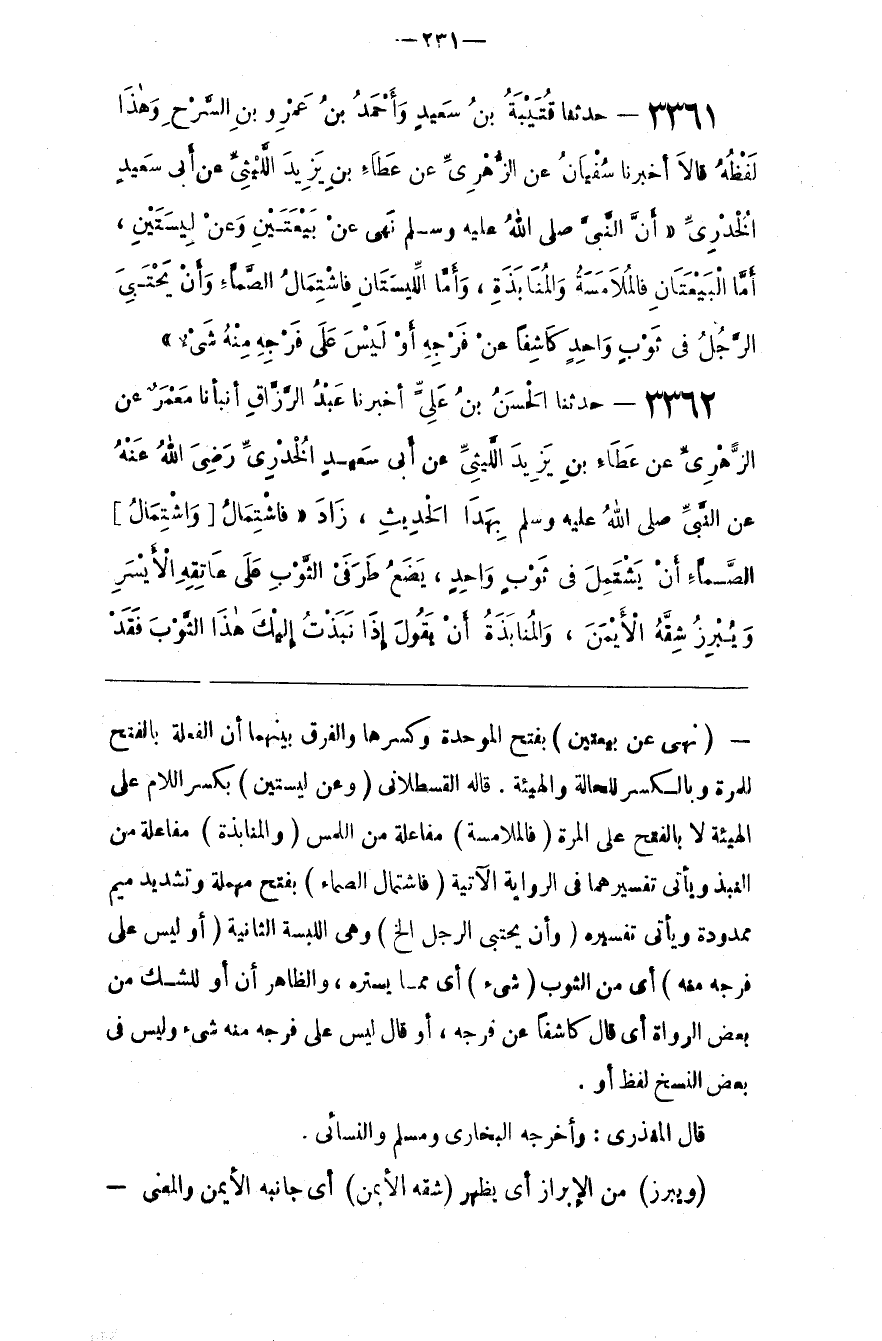 —٢٣١—
٣٣٦١ — حدثنا قُتَيْبَةُ بنُ سَعيدٍ وَأَحْمَدُ بنُ عَمْرِو بنِ السَّرْحِ وَهٰذَا
لَفْظُهُ قالاَ أخبرنا سُفْيَانُ عن الزُّهْرِىِّ عن عَطَاءِ بنِ يَزِيدَ اللَّيْثِىِّ عن أَبى سَعيدٍ
الْخُدْرِىِّ « أَنَّ النَّبىَّ صلى اللهُ عليه وسلم نَهَى عنْ بَيْعَتَيْنِ وَعنْ لِبِسَتَيْنِ ،
أَمَّا الْبَيْعَتَانِ فالمُلاَمَسَةُ وَالمُنَابَذَةِ ، وَأَمَّا اللِّبِسَتَانِ فاشْتِمَالُ الصَّمَّاءِ وَأَنْ يَحْتَبِىَ
الرَّجُلُ فى ثَوْبٍ وَاحِدٍ كَاشِفاً عنْ فَرْجِهِ أَوْ لَيْسَ عَلَى فَرْجِهِ مِنْهُ شَىْءٌ »
٣٣٦٢ — حدثنا الْحَسَنُ بنُ عَلِىٍّ أخبرنا عَبْدُ الرَّزَّاقِ أنبأنا مَعْمَرٌ عن
الزُّهْرِىِّ عن عَطَاءِ بنِ يَزِيدَ اللَّيثِىِّ عن أَبى سَعيدٍ الْخُدْرِىِّ رَضِىَ اللهُ عَنْهُ
عن النَّبىِّ صلى اللهُ عليه وسلم بِهَذَا الْحَدِيثِ ، زَادَ « فاشْتِمَالُ [ وَاشْتِمَالُ ]
الصَّمَّاءِ أَنْ يَشْتَمِلَ فى ثَوْبٍ وَاحِدٍ ، يَضَعُ طَرَفَىْ الثَّوْبِ عَلَى عَاتِقِهِ الْأَيْسَرِ
وَيُبْرِزُ شِقَّهُ الْأَيْمَنَ ، وَالمُنَابَذَةُ أَنْ يَقُولَ إِذَا نَبَذْتُ إِلَيْكَ هٰذَا الثَّوْبَ فَقَدْ
— ( نهى عن بيعتين ) بفتح الموحدة وكسرها والفرق بينهما أن الفعلة بالفتح
للمرة وبالكسر للحالة والهيئة . قاله القسطلانى ( وعن لبستين ) بكسر اللام على
الهيئة لا بالفتح على المرة ( فالملامسة ) مفاعلة من اللمس ( والمنابذة ) مفاعلة من
النبذ ويأتى تفسيرهما فى الرواية الآتية ( فاشتمال الصماء ) بفتح مهملة وتشديد ميم
ممدودة ويأتى تفسيره ( وأن يحتبى الرجل الخ ) وهى اللبسة الثانية ( أو ليس على
فرجه منه ) أى من الثوب ( شىء ) أى مما يستره ، والظاهر أن أو للشك من
بعض الرواة أى قال كاشفاً عن فرجه ، أو قال ليس على فرجه منه شىء وليس فى
بعض النسخ لفظ أو .
قال المنذرى : وأخرجه البخارى ومسلم والنسائى .
(ويبرز) من الإبراز أى يظهر (شقه الأيمن) أى جانبه الأيمن والمعنى —